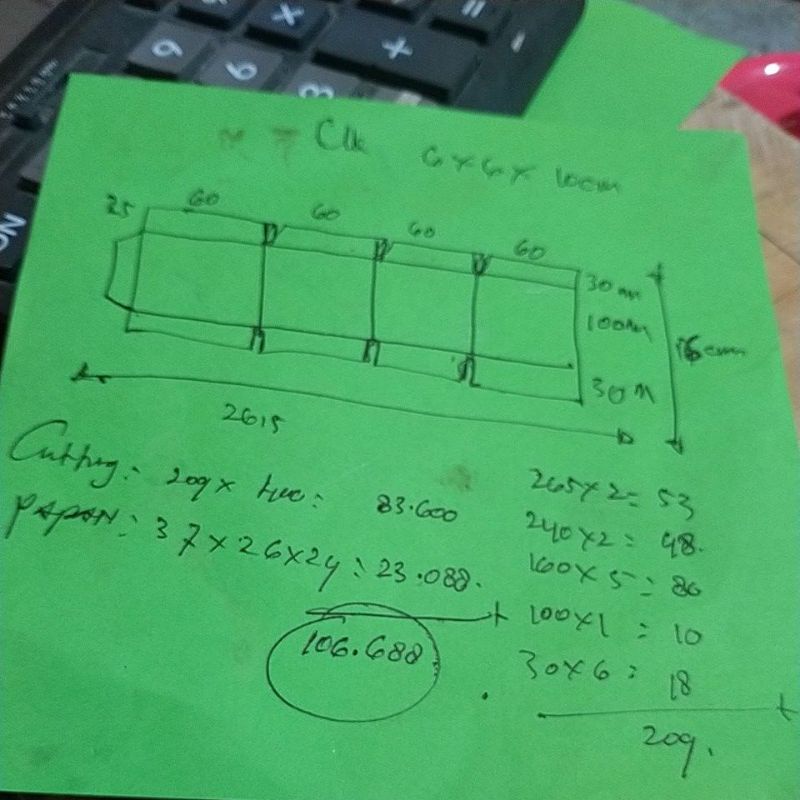 6x6x10cm
25 60 60 60 60
30 mm
100mm
16cmm
30 M
26,5
Cutting: 209 x 400 = 83.600
PAPAN: 37x26x24 = 23.088.
106.688
265x2 = 53
240x2 = 48.
160x5 = 80
100x1 = 10
30x6 = 18
+
209.